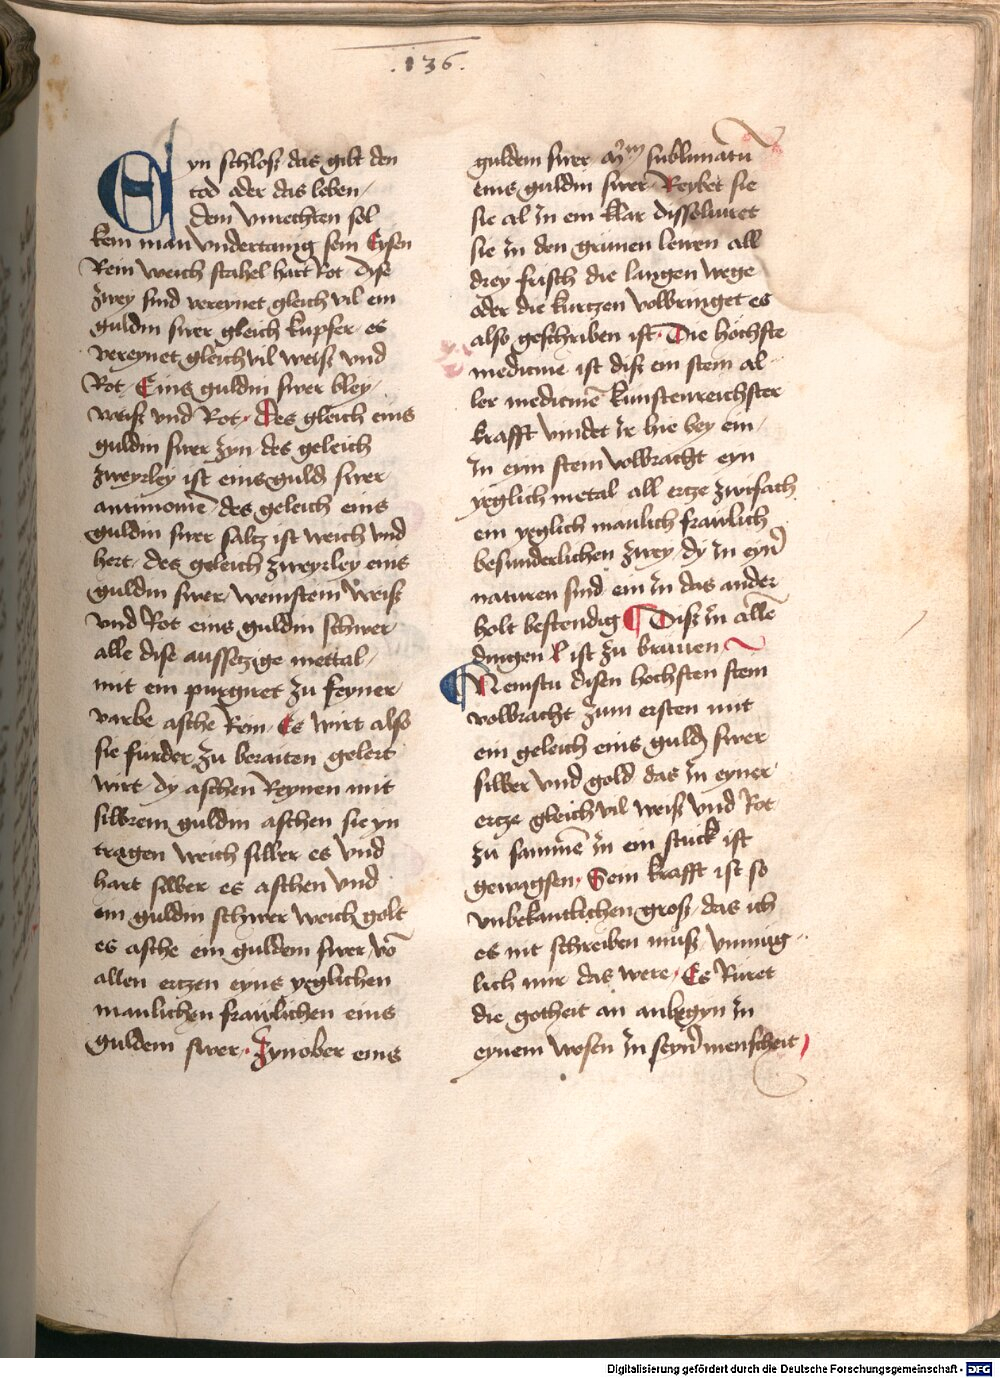 .136.
Eyn schlosz das gibt den
tod oder das leben
dem Unrechten sol
kein man Undertanig sein Eysen
Rein weich stahel hart Rot dise
zwey sind vereynet gleich vil ein
guldin swer gleich kupfer es
vereynet gleich vil weisz und
Rot Eins guldin swer bley
weisz und Rot Des gleich eins
guldin swer zyn des geleich
zweyrley ist eins guld swer
antimoniē des geleich eins
guldin swer saltz ist weich und
hert des geleich zweyrley eins
guldin swer weinstein weisz
und Rot eins guldin schwer
alle dise aussetzige mettal
mit ein purgiret zu feyner
varbe asche Rein Es wirt also
sie furder zu beraiten gelert
wirt dy aschen Reynen mit
silbrein guldin aschen sie yn
tragen weich silber es und
hart silber es aschen und
im guldin schwer weich golt
es asche ein guldein swer vō
allen ertzen eyns yeglichen
manlichen frawlichen eins
guldein swer Zynober eins
guldein swer sublimatū
eins guldin swer Reybet sie
sie al in ein klar dissolviret
sie in den grunen lewen all
drey frisch die langen wege
oder die kurtzen volbringet es
also geschriben ist Die hochste
medicine ist disz ein stein al
ler medicinē kunstenreichster
krafft vindet ir hie bey ein
in eym stein volbracht eyn
yeglich metal all ertze zwifach
ein yeglich manlich frawlich
besunderlichen zwey dy in eyn̄
naturen sind ein in das ander
holt bestendig Disz in allē
dingen ist zu brauen
Nemstu disen hochsten stein
volbracht zum ersten mit
ein geleich eins guld swer
silber und gold das in eyner
ertze gleich vil weisz und Rot
zu sammē in ein stuck ist
gewagsen Sein krafft ist so
unbekantlichen grosz das ich
es nit schreiben musz unmug
lich mir das were Es Ruret
die gotheit an anbegyn in
eynem wesen in seyn̄ menscheit
Digitalisierung gefördert durch die Deutsche Forschungsgemeinschaft - DFG